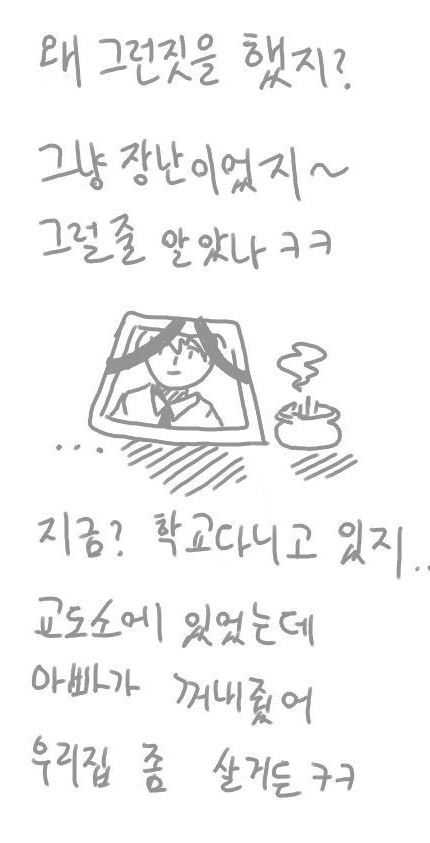 왜 그런짓을 했지?
그냥 장난이었지~
그럴줄 알았나 ㅋㅋ
...
지금? 학교다니고 있지..
교도소에 있었는데
아빠가 꺼내줬어
우리집 좀 살거든 ㅋㅋ